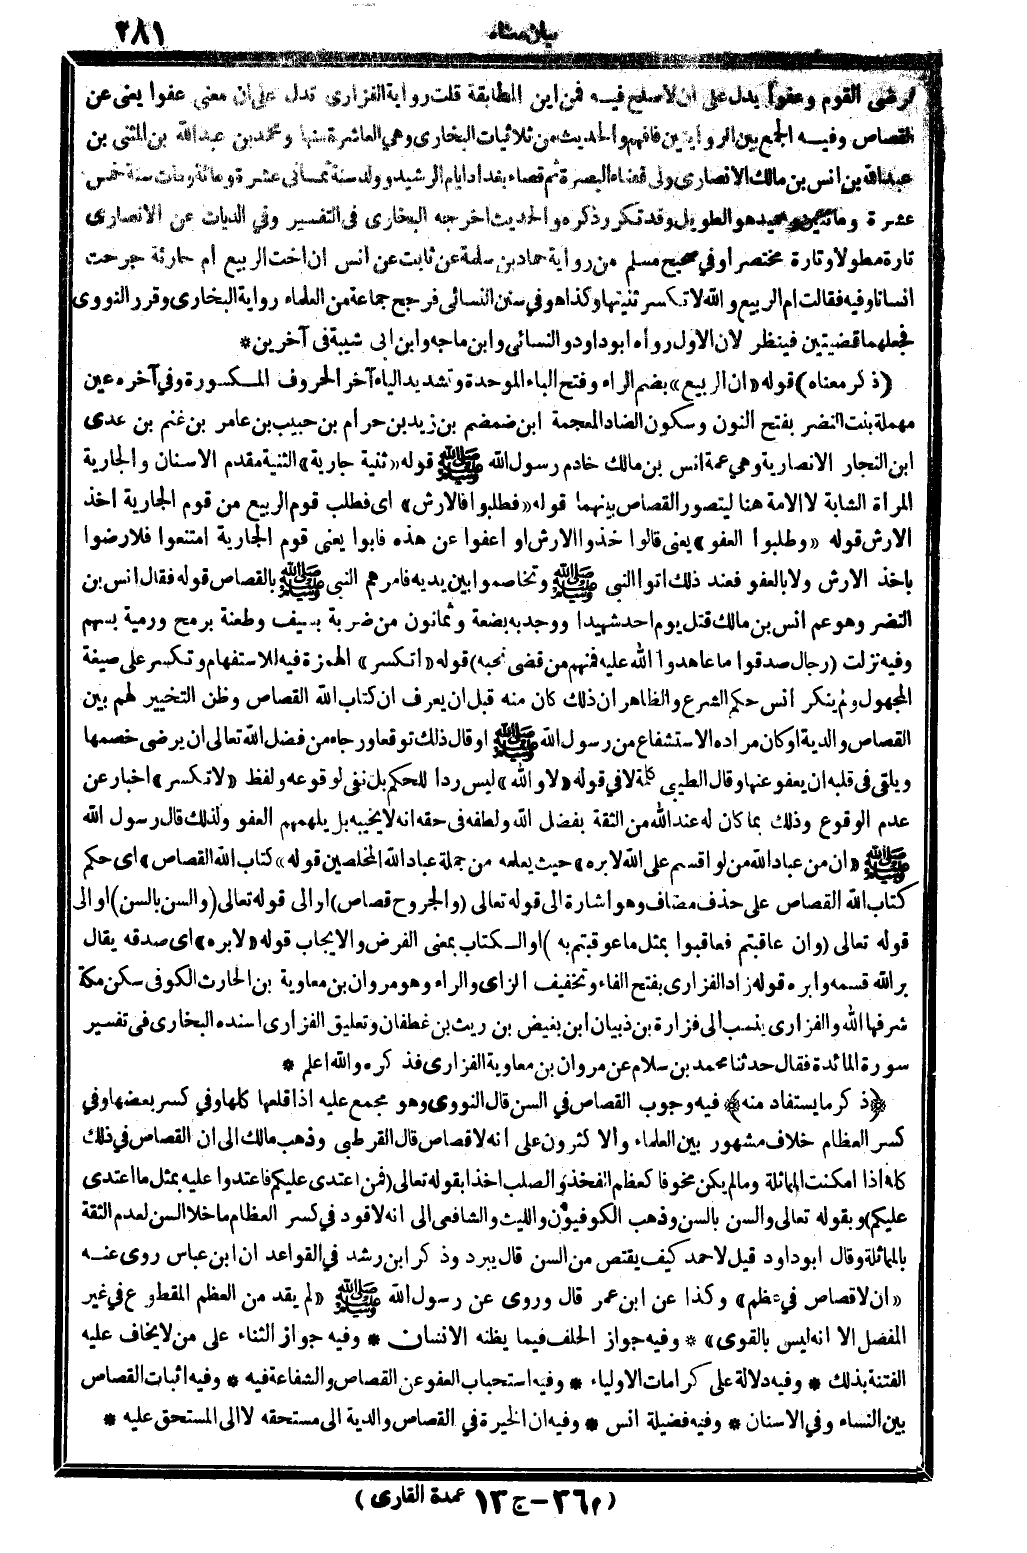 بيان معناه ٢٨١
فرضى القوم وعفوا يدل على ان لا صلح فيه فمن اين المطابقة قلت رواية الفزارى تدل على ان معنى عفوا يعنى عن
القصاص وفيه الجمع بين الروايتين فافهم والحديث من ثلاثيات البخارى وهى العاشرة منها ومحمد بن عبدالله بن المثنى بن
عبدالله بن انس بن مالك الانصارى ولى قضاء البصرة ثم قضاء بغداد ايام الرشيد وولد سنة ثمانى عشرة ومائة ومات سنة خمس
عشرة ومائتين وحميد هو الطويل وقد تكرر ذكره والحديث اخرجه البخارى فى التفسير وفى الديات عن الانصارى
تارة مطولا وتارة مختصرا وفي صحيح مسلم من رواية حماد بن سلمة عن ثابت عن انس ان اخت الربيع أم حارثة جرحت
انسانا وفيه فقالت ام الربيع والله لا تكسر ثنيتها وكذا هو في سنن النسائى فرجح جماعة من العلماء رواية البخارى وقرر النووى
فجعلهما قضيتين فينظر لان الاول رواه ابوداود والنسائى وابن ماجه وابن ابى شيبة فى آخرين*
(ذكر معناه) قوله «ان الربيع» بضم الراء وفتح الباء الموحدة وتشديد الياء آخر الحروف المكسورة وفي آخره عين
مهملة بنت النضر بفتح النون وسكون الضاد المعجمة ابن ضمضم بن زيد بن حرام بن حبيب بن عامر بن غنم بن عدى
ابن النجار الانصارية وهي عمة انس بن مالك خادم رسول الله ﷺ قوله «ثنية جارية» الثنية مقدم الاسنان والجارية
المرأة الشابة لا الامة هنا ليتصور القصاص بينهما قوله «فطلبوا فالارش» اى فطلب قوم الربيع من قوم الجارية اخذ
الارش قوله «وطلبوا العفو» يعنى قالوا خذوا الارش او اعفوا عن هذه فابوا يعنى قوم الجارية امتنعوا فلا رضوا
باخذ الارش ولا بالعفو فعند ذلك اتوا النبى ﷺ وتخاصموا بين يديه فامرهم النبى ﷺ بالقصاص قوله فقال انس بن
النضر وهو عم انس بن مالك قتل يوم احد شهيدا ووجد به بضعة وثمانون من ضربة بسيف وطعنة برمح ورمية بسهم
وفيه نزلت (رجال صدقوا ما عاهدوا الله عليه فمنهم من قضى نحبه) قوله «اتكسر» الهمزة فيه للاستفهام وتكسر على صيغة
المجهول ولم ينكر أنس حكم الشرع والظاهر ان ذلك كان منه قبل ان يعرف ان كتاب الله القصاص وظن التخيير لهم بين
القصاص والدية او كان مراده الاستشفاع من رسول الله ﷺ او قال ذلك توقعا ورجاء من فضل الله تعالى ان يرضى خصمها
ويلقى فى قلبه ان يعفو عنها وقال الطيبى كلمة لا في قوله «لا والله» ليس ردا للحكم بل نفى لوقوعه ولفظ «لا تكسر» اخبار عن
عدم الوقوع وذلك بما كان له عند الله من الثقة بفضل الله ولطفه فى حقه انه لا يخيبه بل يلهمهم العفو ولذلك قال رسول الله
ﷺ «ان من عباد الله من لو اقسم على الله لابره» حيث يعلمه من جملة عباد الله المخلصين قوله «كتاب الله القصاص» اى حكم
كتاب الله القصاص على حذف مضاف وهو اشارة الى قوله تعالى (والجروح قصاص) او الى قوله تعالى (والسن بالسن) او الى
قوله تعالى (وان عاقبتم فعاقبوا بمثل ما عوقبتم به) او الكتاب بمعنى الفرض والايجاب قوله «لابره» اى صدقه يقال
بر الله قسمه وابره قوله زاد الفزارى بفتح الفاء وتخفيف الزاى والراء وهو مروان بن معاوية بن الحارث الكوفى سكن مكة
شرفها الله والفزارى ينسب الى فزارة بن ذبيان ابن بغيض بن ريث بن غطفان وتعليق الفزارى اسنده البخارى فى تفسير
سورة المائدة فقال حدثنا محمد بن سلام عن مروان بن معاوية الفزارى فذكره والله اعلم *
﴿ذكر ما يستفاد منه﴾ فيه وجوب القصاص في السن قال النووى وهو مجمع عليه اذا قلعها كلها وفي كسر بعضها وفي
كسر العظام خلاف مشهور بين العلماء والاكثرون على انه لا قصاص قال القرطبى وذهب مالك الى ان القصاص في ذلك
كله اذا امكنت المماثلة وما لم يكن مخوفا كعظم الفخذ والصلب اخذا بقوله تعالى (فمن اعتدى عليكم فاعتدوا عليه بمثل ما اعتدى
عليكم) وبقوله تعالى والسن بالسن وذهب الكوفيون والليث والشافعى الى انه لا قود في كسر العظام ما خلا السن لعدم الثقة
بالمماثلة وقال ابوداود قيل لاحمد كيف يقتص من السن قال يبرد وذكر ابن رشد في القواعد ان ابن عباس روى عنه
«ان لا قصاص في عظم» وكذا عن ابن عمر قال وروى عن رسول الله ﷺ «لم يقد من العظم المقطوع في غير
المفصل الا انه ليس بالقوى» * وفيه جواز الحلف فيما يظنه الانسان * وفيه جواز الثناء على من لا يخاف عليه
الفتنة بذلك * وفيه دلالة على كرامات الاولياء * وفيه استحباب العفو عن القصاص والشفاعة فيه * وفيه اثبات القصاص
بين النساء وفي الاسنان * وفيه فضيلة انس * وفيه ان الخيرة في القصاص والدية الى مستحقه لا الى المستحق عليه *
(م ٣٦ - ج ١٣ عمدة القارى)